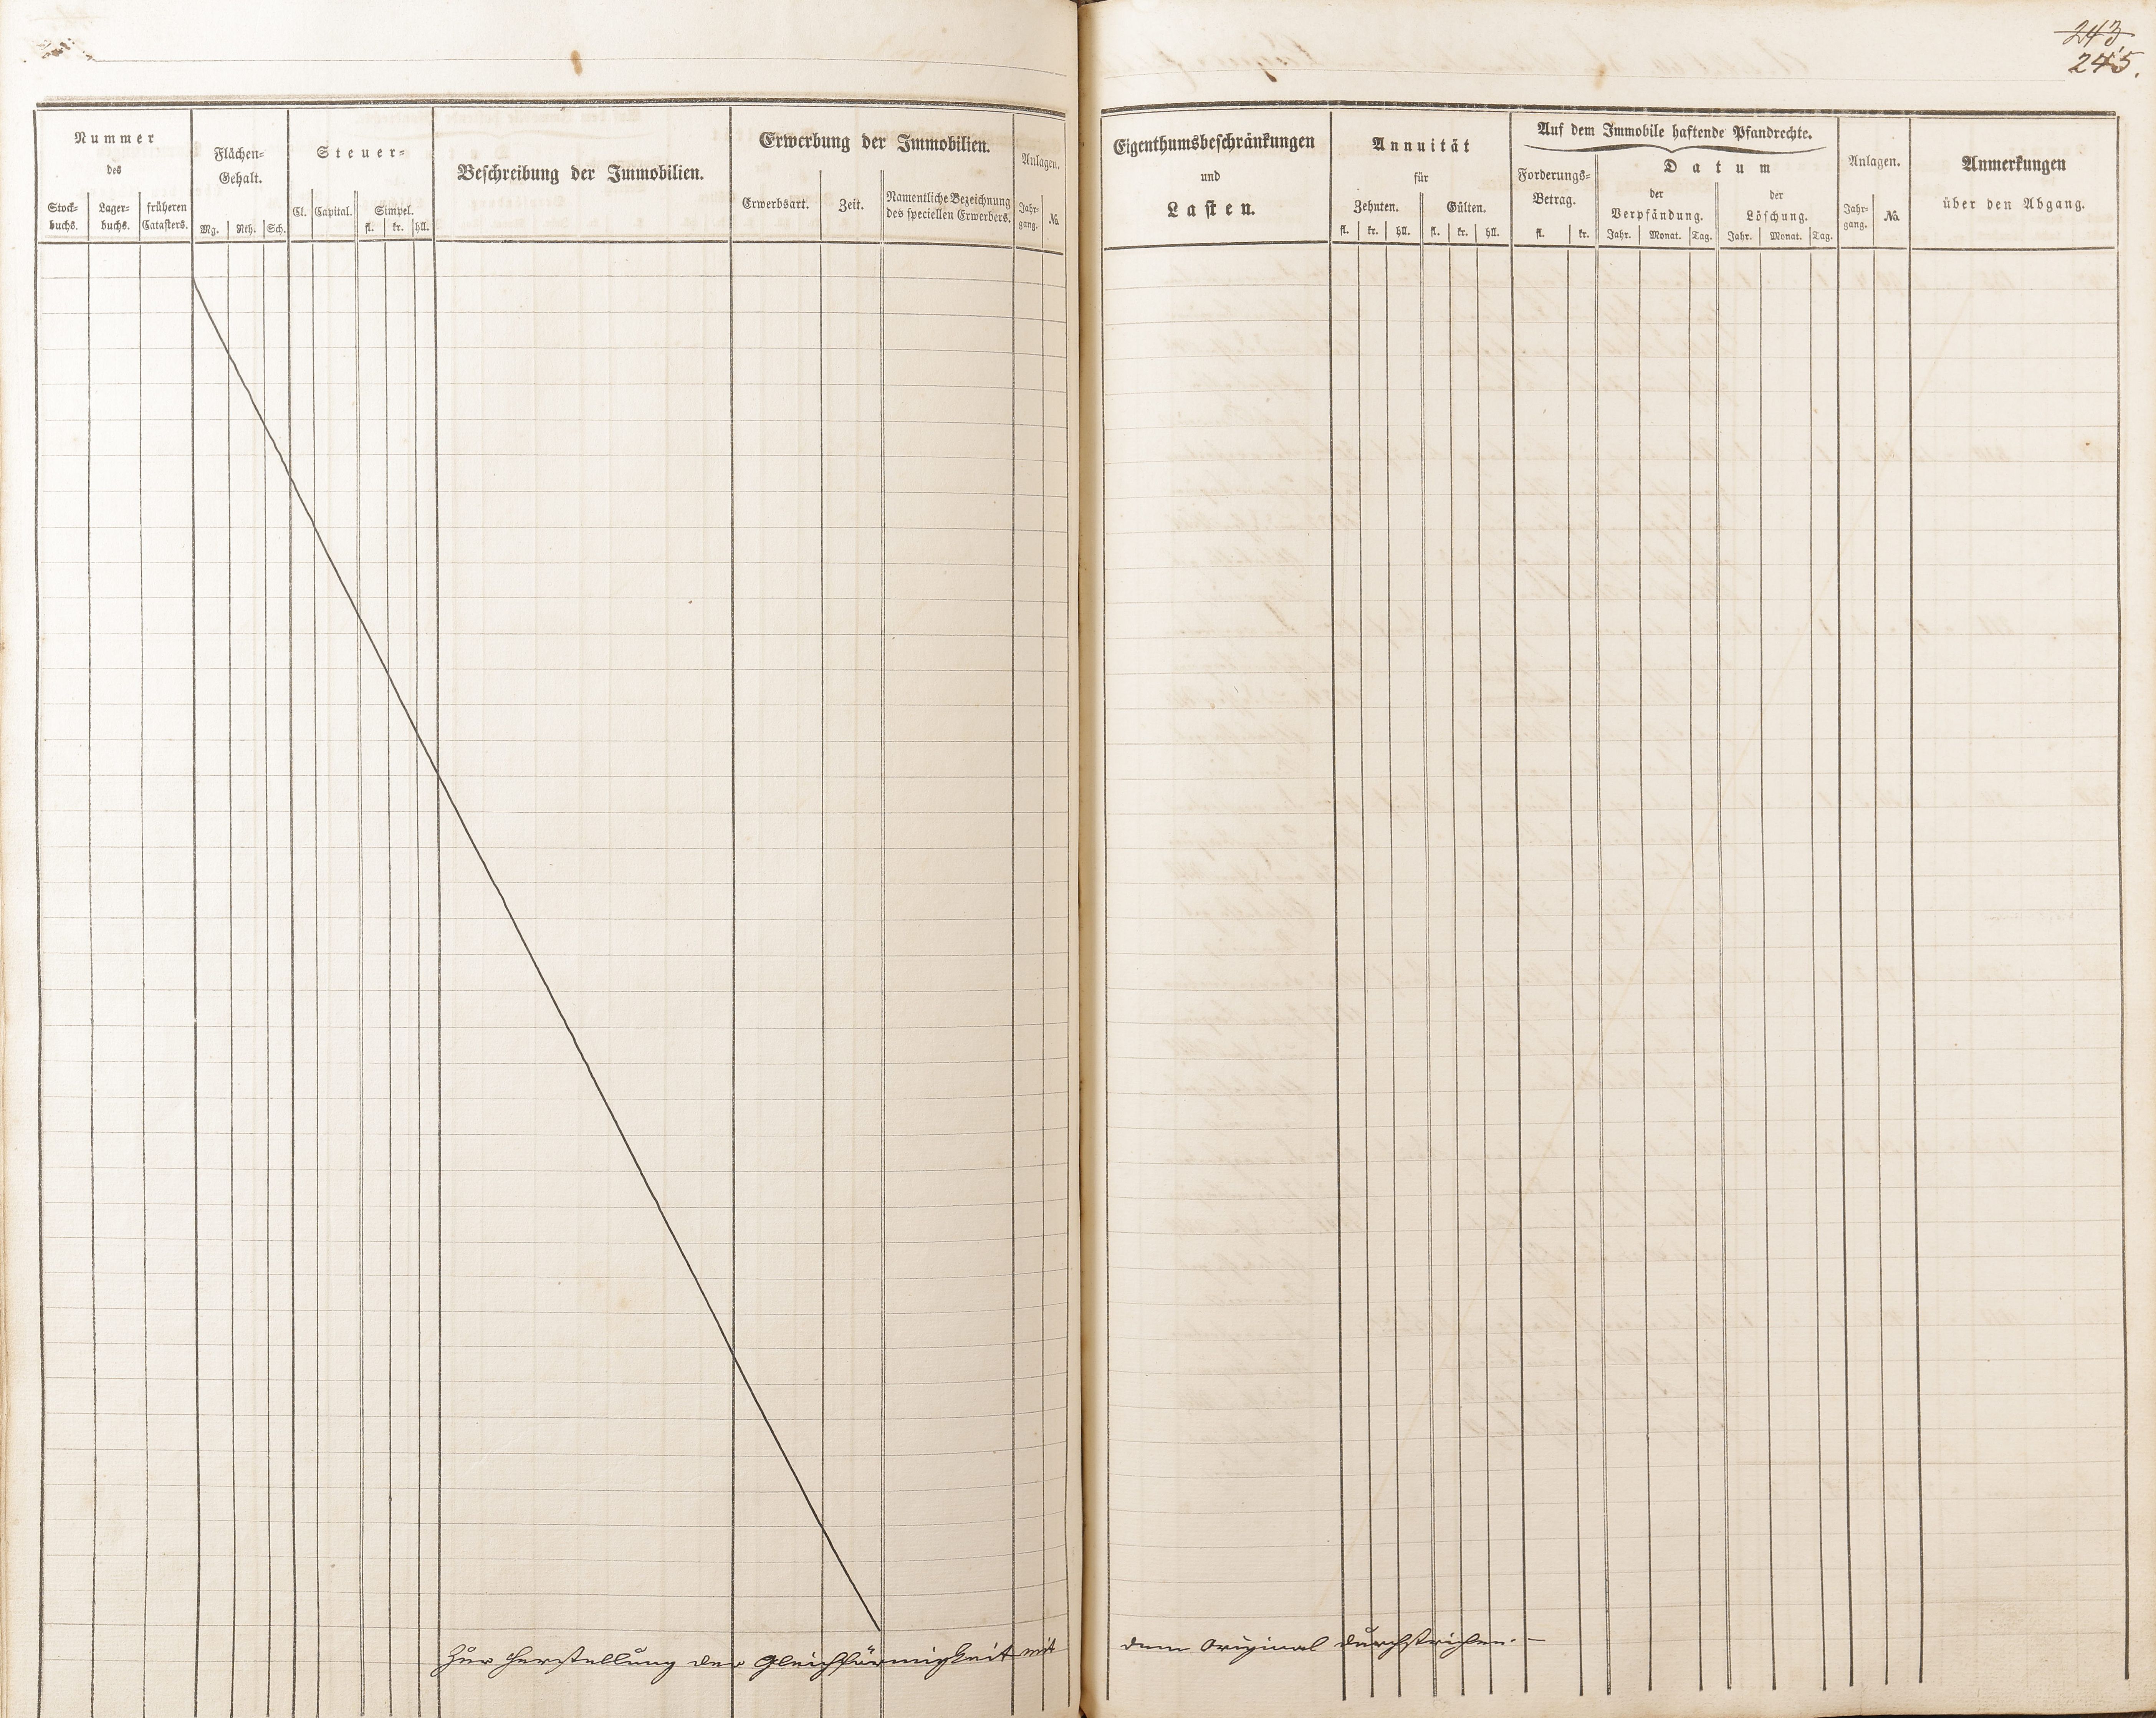 243
245.
Nummer
des
Stock-
buchs.
Lager-
buchs.
früheren
Catasters.
Flächen-
Gehalt.
Mg. Rth. Sch.
Steuer-
Cl. Capital. Simpel.
fl. kr. hll.
Beschreibung der Immobilien.
Erwerbung der Immobilien.
Erwerbsart. Zeit.
Namentliche Bezeichnung
des speciellen Erwerbers.
Anlagen.
Jahr-
gang.
No.
Eigenthumsbeschränkungen
und
Lasten.
Annuität
für
Zehnten. Gülten.
fl. kr. hll. fl. kr. hll.
Auf dem Immobile haftende Pfandrechte.
Forderungs-
Betrag.
fl. kr.
Datum
der
Verpfändung.
Jahr. Monat. Tag.
der
Löschung.
Jahr. Monat. Tag.
Anlagen.
Jahr-
gang.
No.
Anmerkungen
über den Abgang.
Zur Herstellung der Gleichförmigkeit mit dem Original durchstrichen. –